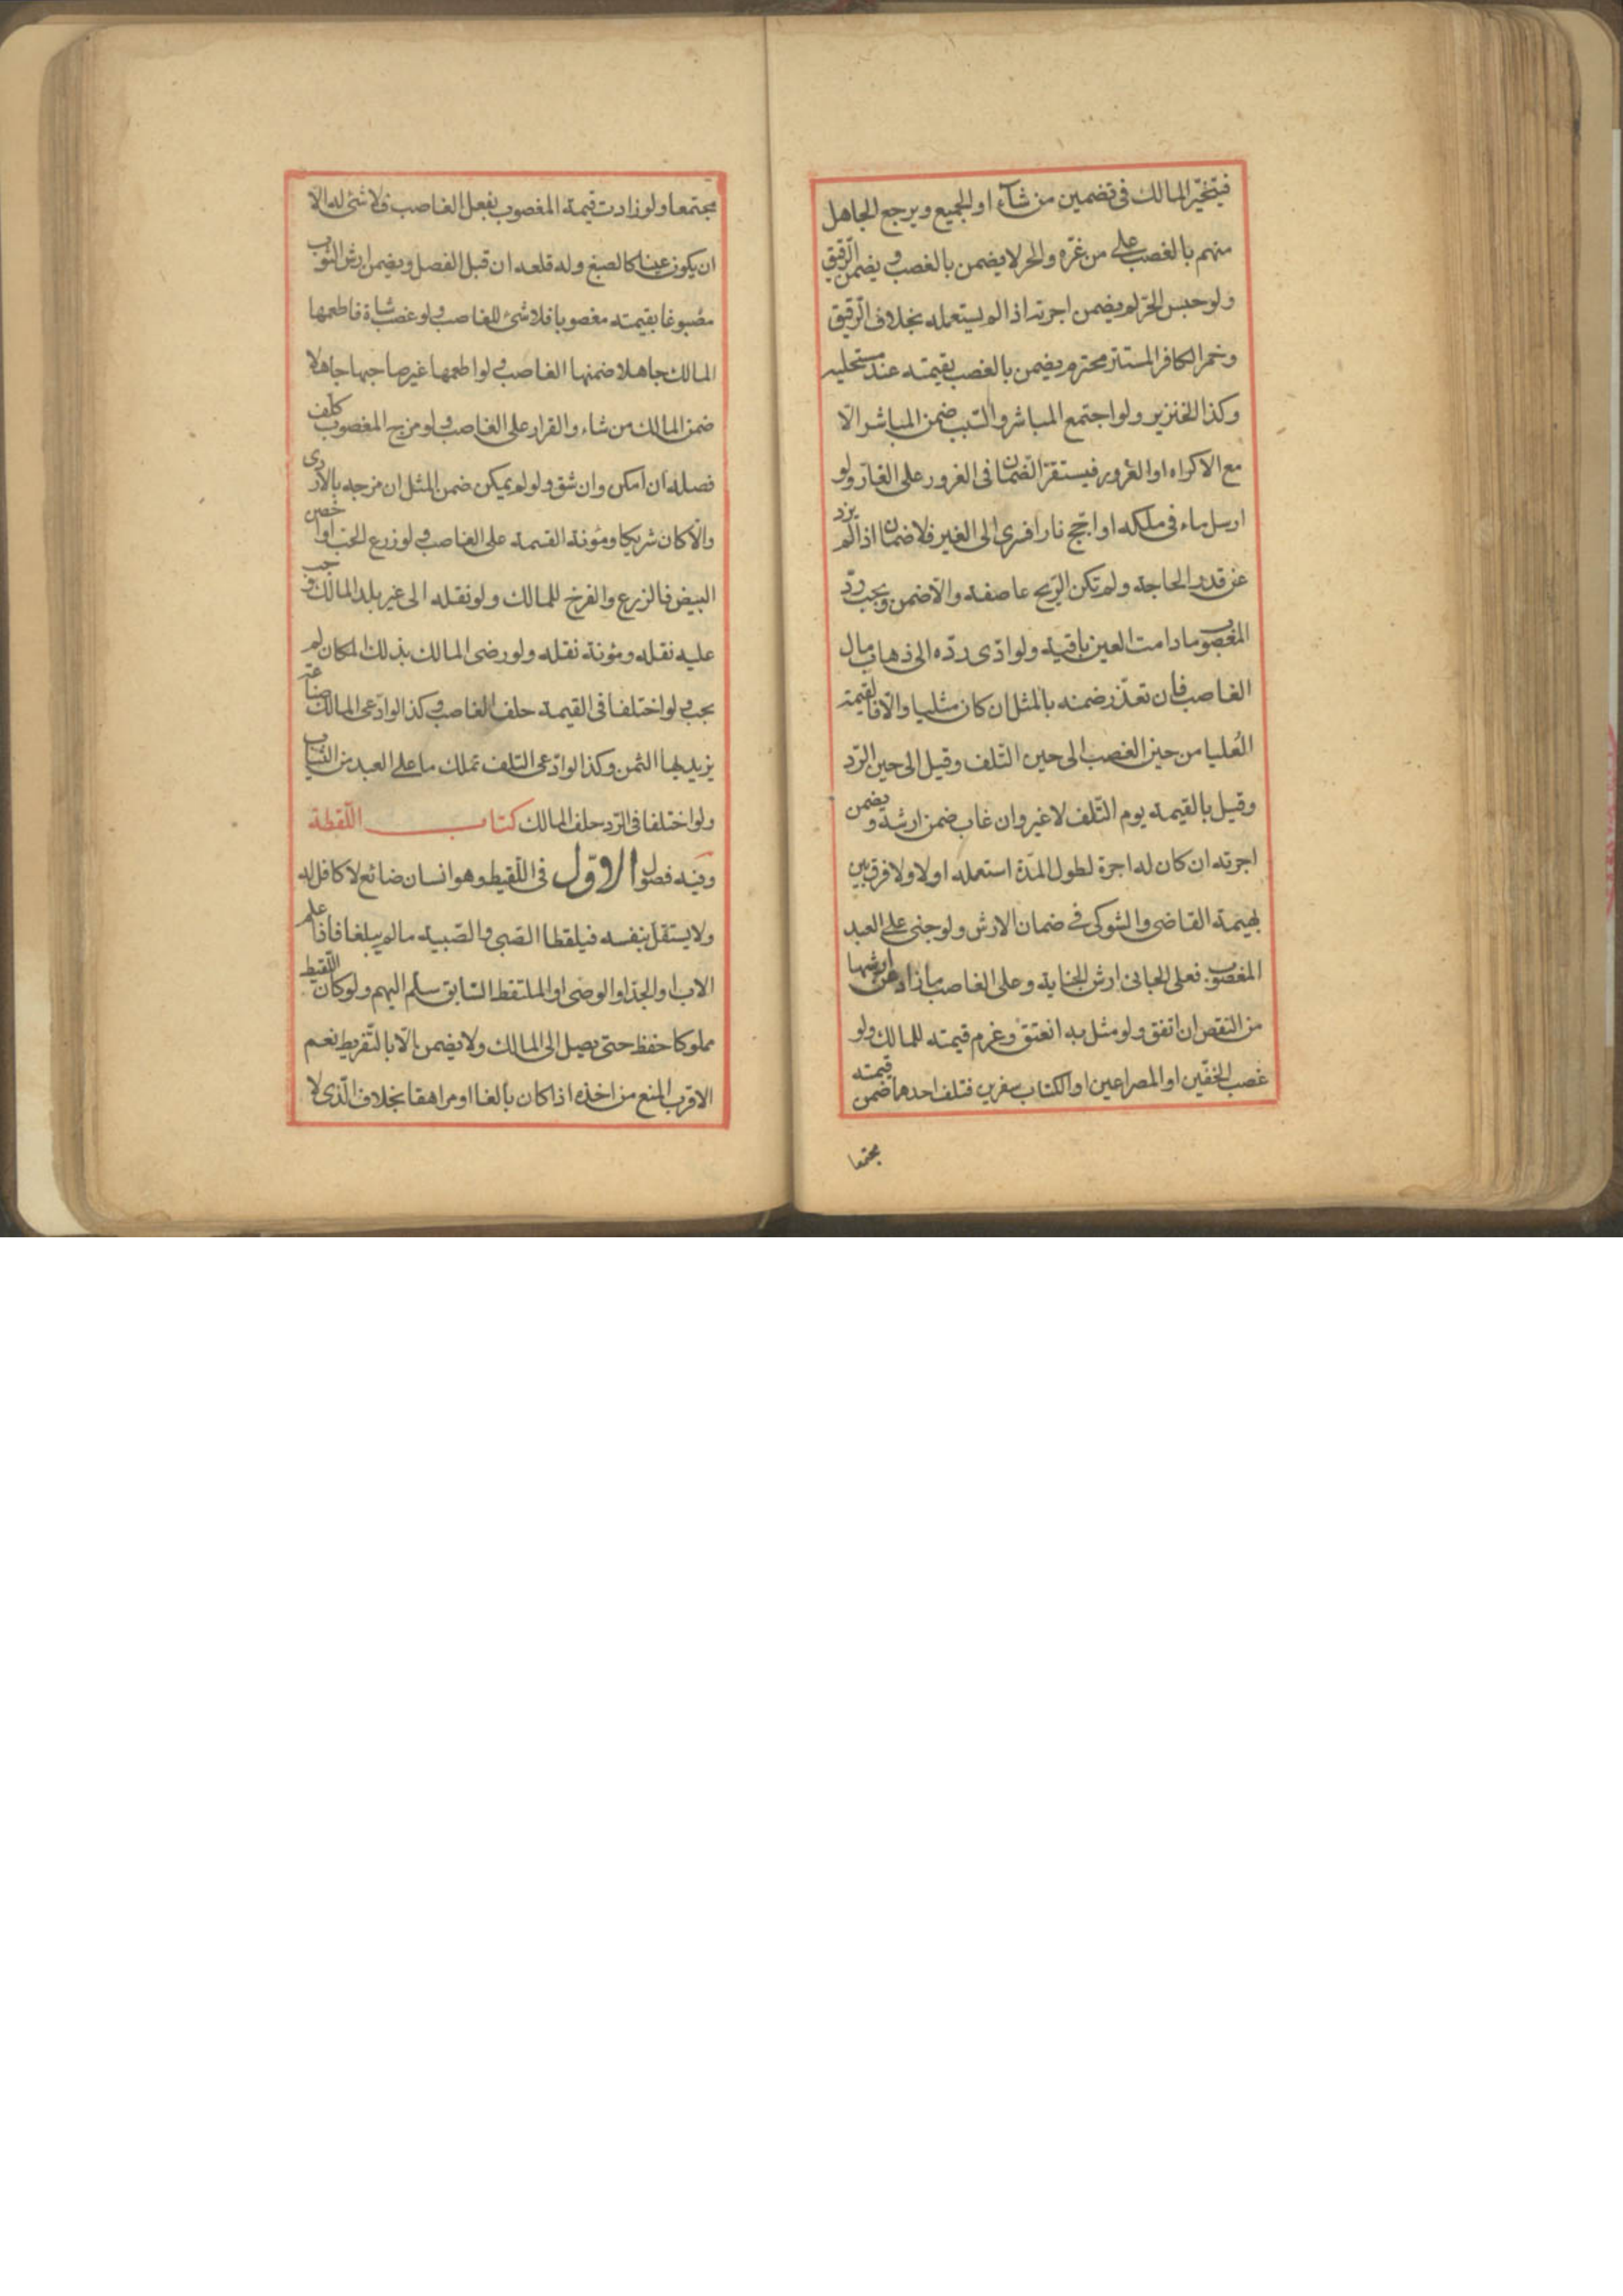 فيتخيّر المالك فى تضمين من شآء او الجميع ويرجع الجاهل
منهم بالغصب على من غرّه والحر لا يضمن بالغصب و يضمن الرّقيق
ولو حبس الحرّ لم يضمن اجرته اذا لم يستعمله بخلاف الرّقيق
وخمر الكافر المستتر محترم يضمن بالغصب بقيمته عند مستحليه
وكذا الخنزير ولو اجتمع المباشر والسّبب ضمن المباشر الّا
مع الاكراه او الغرور فيستقرّ الضّمان فى الغرور على الغارّ ولو
ارسل ماء فى ملكه او اجّج نارا فسرى الى الغير فلا ضمان اذا لم يزد
عن قدر الحاجة ولم تكن الرّيح عاصفة والّا ضمن ويجب ردّ
المغصوب ما دامت العين باقية ولو ادّى ردّه الى ذهاب مال
الغاصب فان تعذّر ضمنه بالمثل ان كان مثليا والّا فالقيمة
العُليا من حين الغصب الى حين التّلف وقيل الى حين الرّد
وقيل بالقيمة يوم التّلف لا غير وان عاب ضمن ارشه و يضمن
اجرته ان كان له اجرة لطول المدّة استعمله او لا ولا فرق بين
بهيمة القاضى والشوكى فى ضمان الارش ولو جنى على العبد
المغصوب فعلى الجانى ارش الجناية وعلى الغاصب ما زاد عن ارشها
من النقص ان اتفق ولو مثل به انعتق وغرم قيمته للمالك ولو
غصب الخفّين او المصراعين او الكتاب سفرين فتلف احدهما ضمن قيمته
مجتمعا
مجتمعا ولو زادت قيمة المغصوب بفعل الغاصب فلا شئ له الّا
ان يكون عينا كالصبغ وله قلعه ان قبل الفصل ويضمن ارش الثوب
مصبوغا بقيمته مغصوبا فلا شئ للغاصب ولو غصب شاة فاطعمها
المالك جاهلا ضمنها الغاصب ولو اطعمها غير صاحبها جاهلا
ضمن المالك من شاء والقرار على الغاصب ولو مزج المغصوب كلّف
فصله ان امكن وان شق ولو لم يمكن ضمن المثل ان مزجه بالاردى
والّا كان شريكا ومئونة القسمة على الغاصب ولو زرع الحبّ او احضن
البيض فالزرع والفرخ للمالك ولو نقله الى غير بلد المالك وجب
عليه نقله ومئونة نقله ولو رضى المالك بذلك المكان لم
يجب ولو اختلفا فى القيمة حلف الغاصب وكذا لو ادّعى المالك صناعة
يزيد بها الثمن وكذا لو ادّعى التلف تملك ما على العبد من الثياب
ولو اختلفا فى الرّد حلف المالك كتاب اللّقطة
وفيه فصول الاوّل فى اللّقيط وهو انسان ضائع لا كافل له
ولا يستقل بنفسه فيلقط الصّبى والصّبية ما لم يبلغا فاذا علم
الاب او الجد او الوصى او الملتقط السّابق سلّم اليهم ولو كان اللّقيط
مملوكا حفظ حتى يصل الى المالك ولا يضمن الّا بالتّفريط نعم
الاقرب المنع من اخذه اذا كان بالغا او مراهقا بخلاف الّذى لا